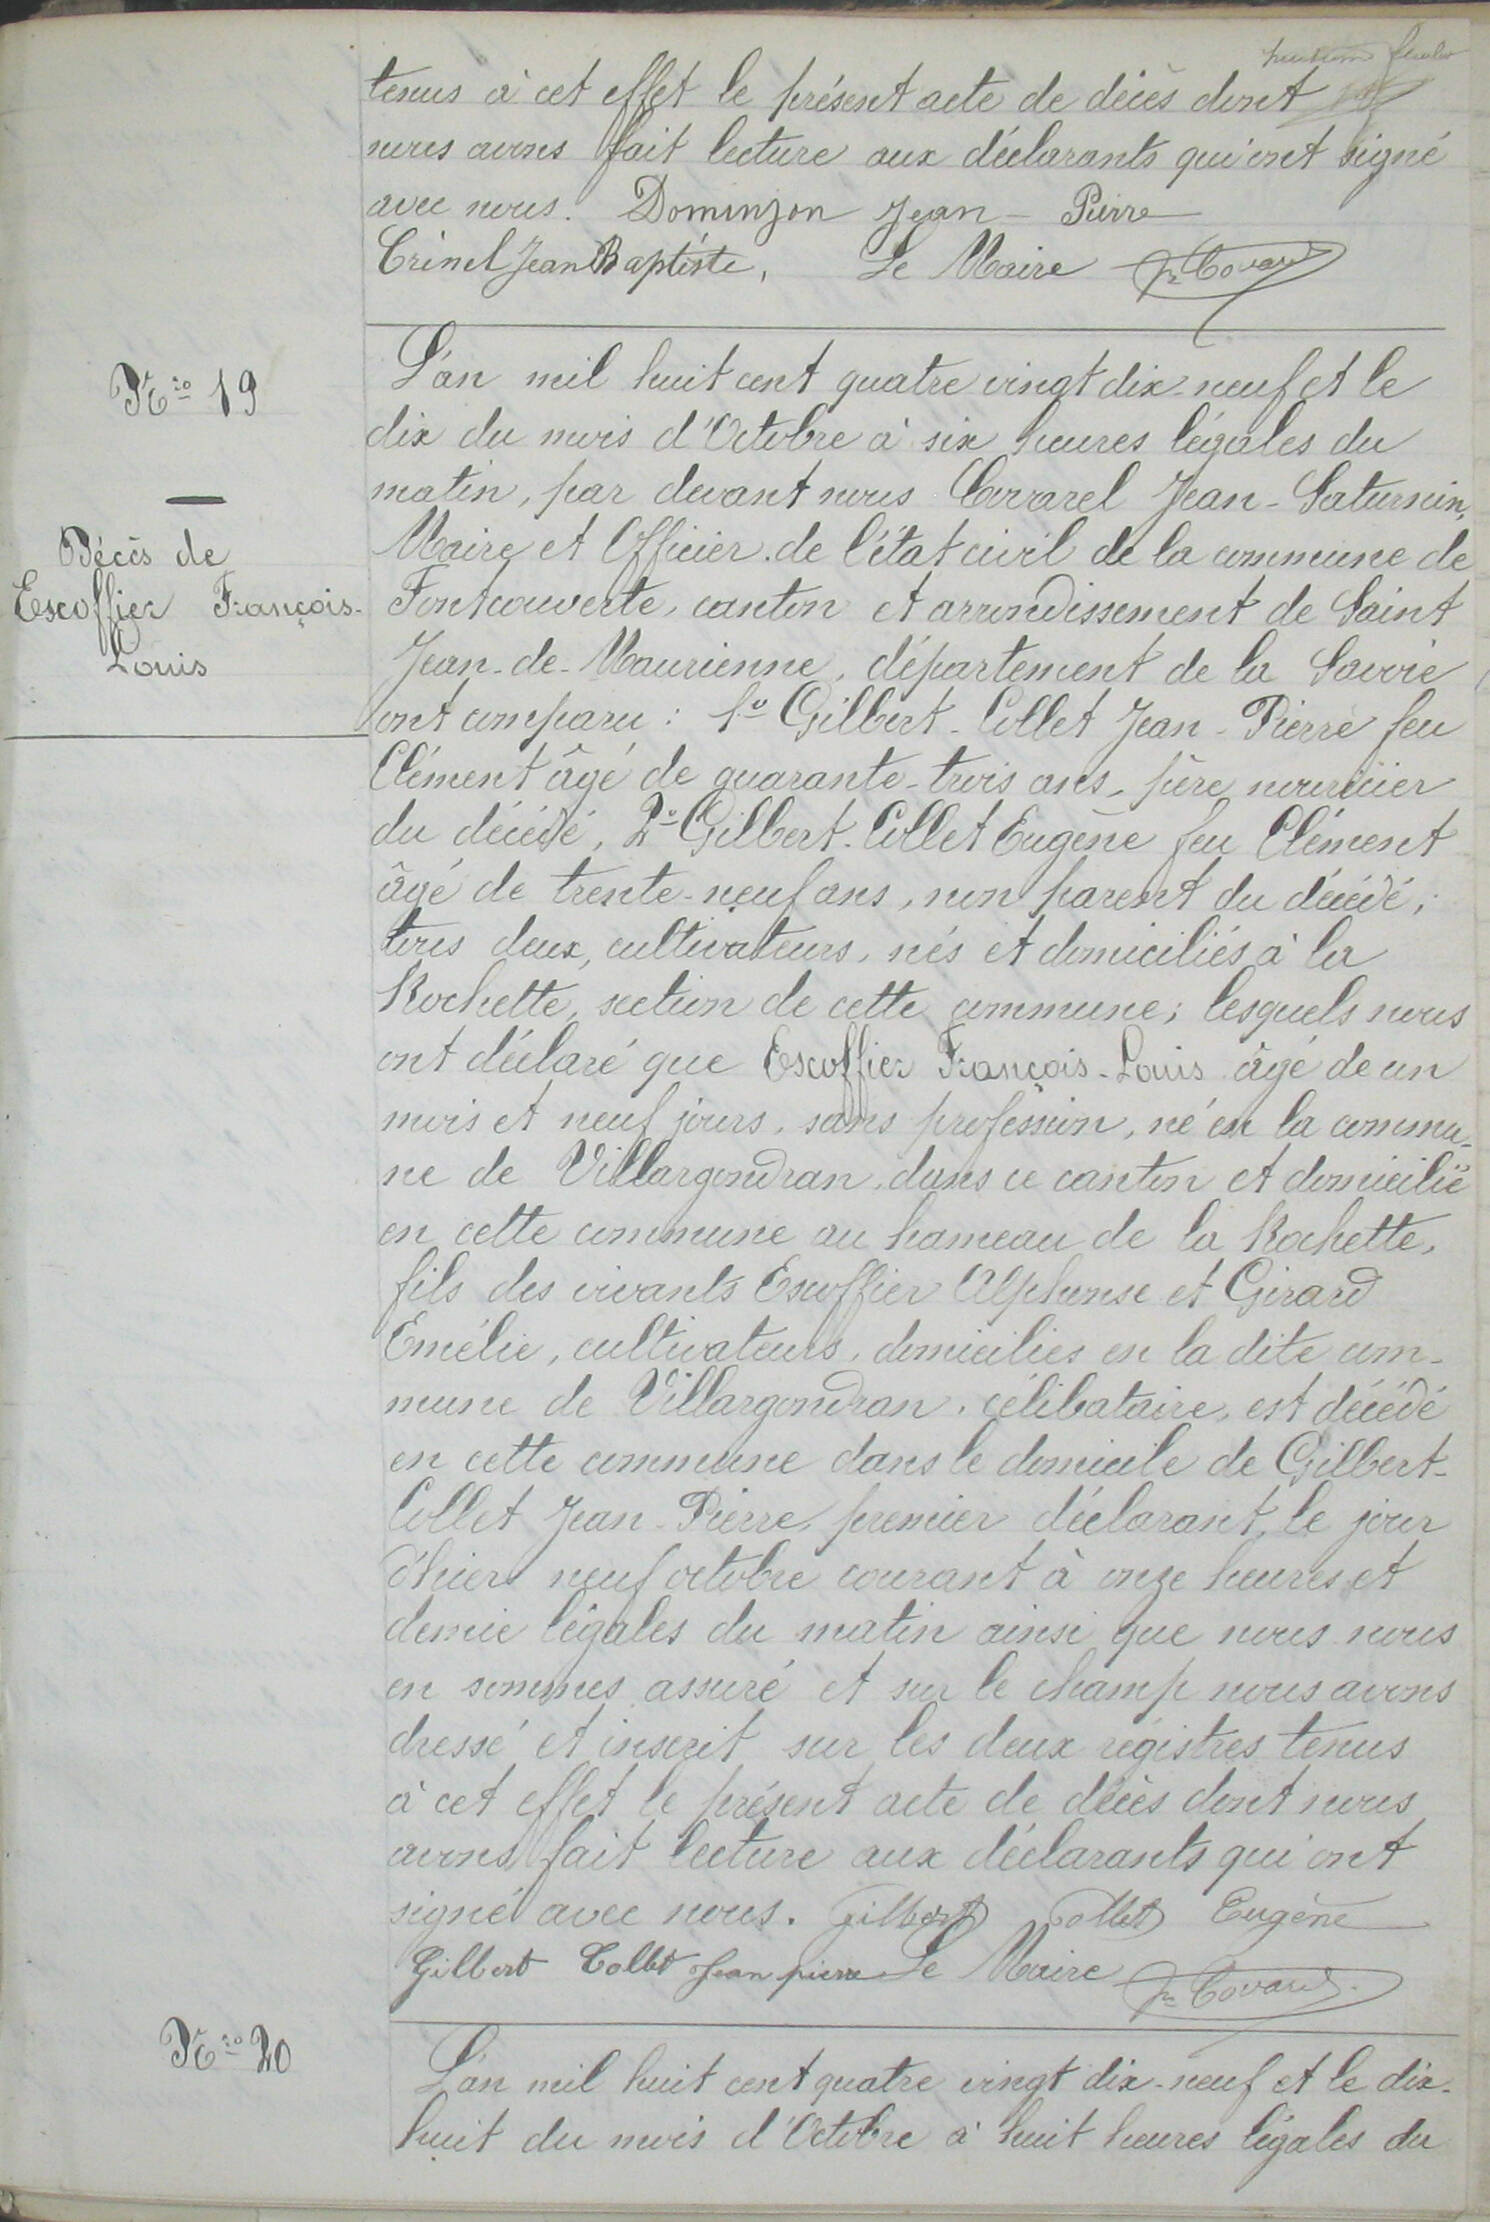 huitième feuillet
tenus à cet effet le présent acte de décès dont
nous avons fait lecture aux déclarants qui ont signé
avec nous. Dominjon Jean-Pierre
Crinel Jean Baptiste, Le Maire
N.ro 19
Décès de
Escoffier François-
Louis
L'an mil huit cent quatre vingt dix-neuf et le
dix du mois d'Octobre à six heures légales du
matin, par devant nous Covarel Jean-Saturnin,
Maire et Officier de l'état civil de la commune de
Fontcouverte, canton et arrondissement de Saint
Jean-de-Maurienne, département de la Savoie
ont comparu : 1º Gilbert-Collet Jean-Pierre feu
Clément âgé de quarante-trois ans, père nourricier
du décédé, 2º Gilbert-Collet Eugène feu Clément
âgé de trente-neuf ans, non parent du décédé,
tous deux, cultivateurs, nés et domiciliés à la
Rochette, section de cette commune; lesquels nous
ont déclaré que Escoffier François-Louis âgé de un
mois et neuf jours, sans profession, né en la commu-
ne de Villargondran, dans ce canton et domicilié
en cette commune au hameau de la Rochette,
fils des vivants Escoffier Alphonse et Girard
Emélie, cultivateurs, domiciliés en la dite com-
mune de Villargondran, célibataire, est décédé
en cette commune dans le domicile de Gilbert-
Collet Jean-Pierre, premier déclarant, le jour
d'hier neuf octobre courant à onze heures et
demie légales du matin ainsi que nous nous
en sommes assuré et sur le champ nous avons
dressé et inscrit sur les deux régistres tenus
à cet effet le présent acte de décès dont nous
avons fait lecture aux déclarants qui ont
signé avec nous. Gilbert Collet Eugène
Gilbert Collet Jean pierre Le Maire
N.ro 20
L'an mil huit cent quatre vingt dix-neuf et le dix-
huit du mois d'Octobre à huit heures légales du